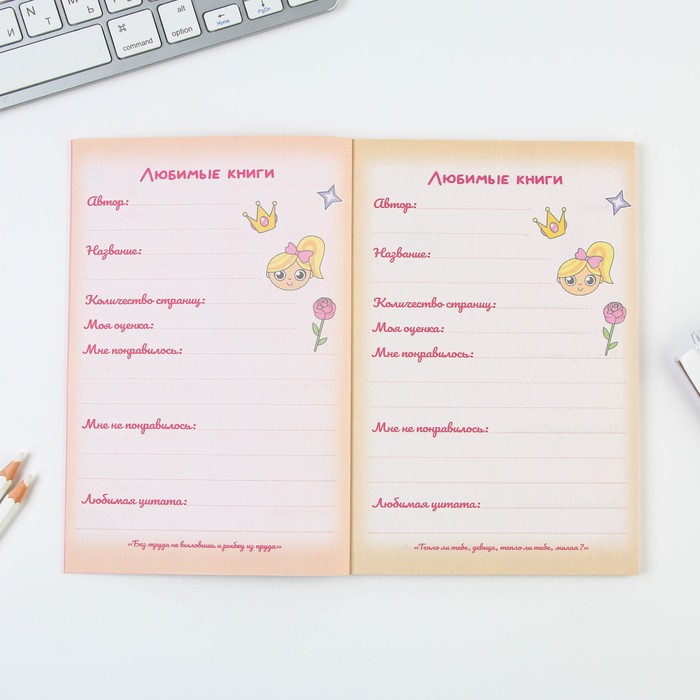 И Т Ь Б Ю
⌘ command
alt option
Home
PgDn
Любимые книги
Автор:
Название:
Количество страниц:
Моя оценка:
Мне понравилось:
Мне не понравилось:
Любимая цитата:
«Без труда не выловишь и рыбку из пруда»
Любимые книги
Автор:
Название:
Количество страниц:
Моя оценка:
Мне понравилось:
Мне не понравилось:
Любимая цитата:
«Тепло ли тебе, девица, тепло ли тебе, милая?»